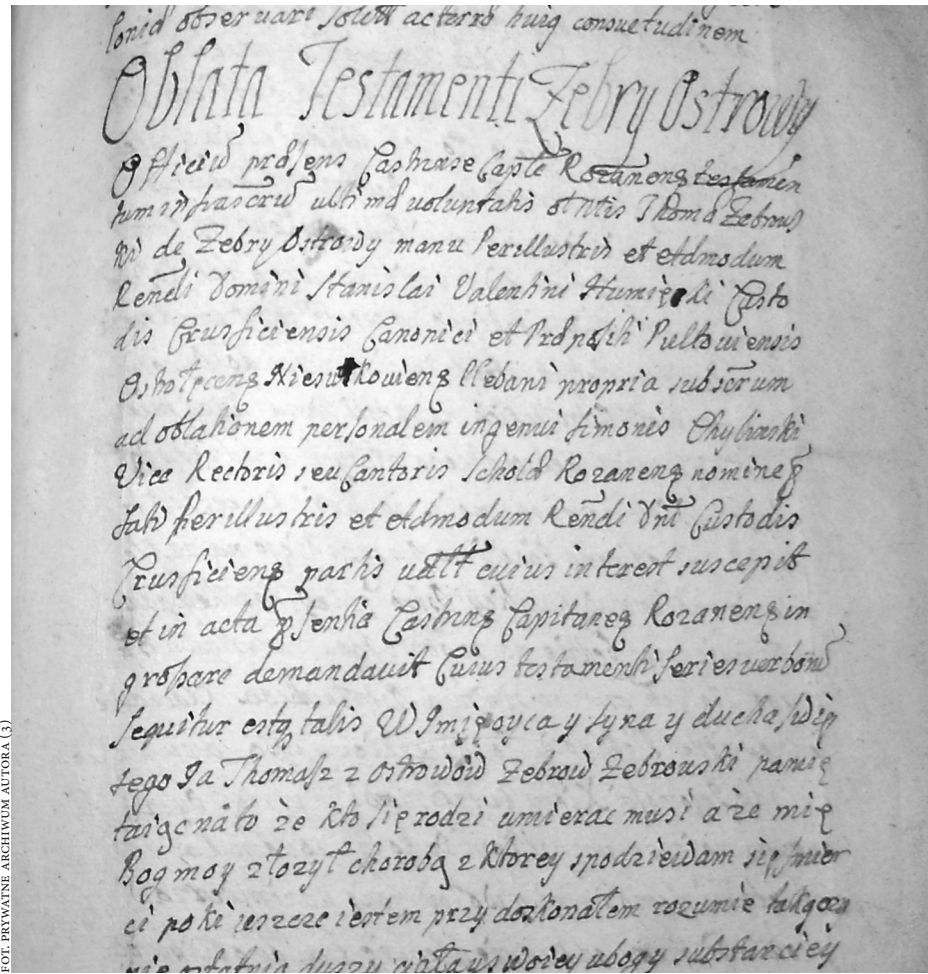 observari solet acterro huig consvetudinem
Oblata Testamenti Zebry Ostrowy
Officiū prdsens Castrense Caple Rozaneng testamen
tum infrascrū ultimd voluntatis Thomd Zebrows
ki de Zebry Ostrowy manu Perillustris et Admodum
Rendi Domini Stanislai Valentini Humięcki Custo
dis Crusficiensis Canonici et Prdpositi Pultoviensis
Plebani propria subscrum
ad oblationem personalem ingenui Simonis Chylinski
Vice Rectoris seu Cantoris Schold Rozaneng nomine
fati perillustris et Admodum Rendi Dni Custodis
Crusficieng partis cuius interest suscepit
et in acta psentia Castreng Capitaneg Rozaneng in
grossare demandavit Cuius testamenti series verborū
sequitur estq talis W Imię oyca y syna y ducha swię
tego Ja Thomasz z Ostrowow Zebrow Zebrowski pamię
taigc na to że kto się rodzi umierac musi a że mię
Bog moy złozył chorobą z ktorey spodziewam się smier
ci poki ieszcze iestem przy doskonałem rozumie
duszy ciała swoiey ubogy substanciey
FOT. PRYWATNE ARCHIWUM AUTORA (3)